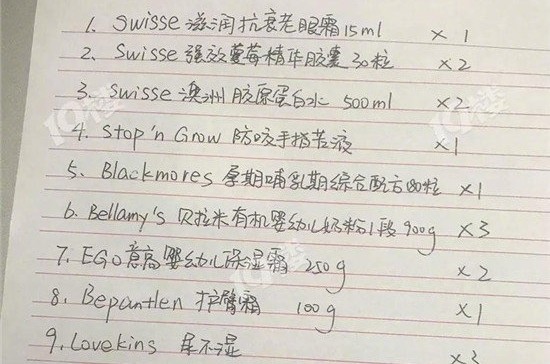 1. Swisse 滋润抗衰老眼霜 15ml ×1
2. Swisse 强效蔓莓精华胶囊 30粒 ×2
3. Swisse 澳洲胶原蛋白水 500ml ×2
4. Stop'n Grow 防咬手指苦液 ×1
5. Blackmores 孕期哺乳期综合配方 180粒 ×1
6. Bellamy's 贝拉米有机婴幼儿奶粉1段 900g ×3
7. EGO意高婴幼儿保湿霜 250g ×2
8. Bepanten 护臀霜 100g ×1
9. Lovekins 尿不湿 ×3
19楼